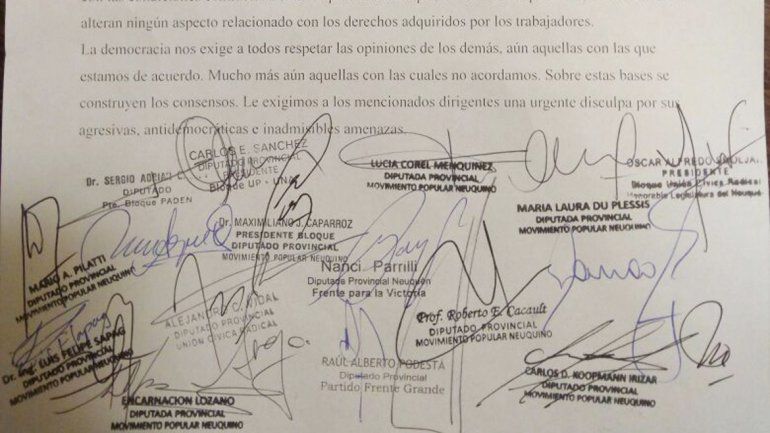 alteran ningún aspecto relacionado con los derechos adquiridos por los trabajadores.
La democracia nos exige a todos respetar las opiniones de los demás, aún aquellas con las que
estamos de acuerdo. Mucho más aún aquellas con las cuales no acordamos. Sobre estas bases se
construyen los consensos. Le exigimos a los mencionados dirigentes una urgente disculpa por sus
agresivas, antidemocráticas e inadmisibles amenazas.
CARLOS E. SANCHEZ
DIPUTADO PROVINCIAL
PRESIDENTE
Bloque UP - UNA
Dr. SERGIO
DIPUTADO
Pte. Bloque PADEN
LUCIA COREL MENQUINEZ
DIPUTADA PROVINCIAL
MOVIMIENTO POPULAR NEUQUINO
OSCAR ALFREDO
PRESIDENTE
Bloque Unión Cívica Radical
Honorable Legislatura del Neuquén
MARIA LAURA DU PLESSIS
DIPUTADA PROVINCIAL
MOVIMIENTO POPULAR NEUQUINO
Dr. MAXIMILIANO J. CAPARROZ
PRESIDENTE BLOQUE
DIPUTADO PROVINCIAL
MOVIMIENTO POPULAR NEUQUINO
MARIO A. PILATTI
DIPUTADO PROVINCIAL
MOVIMIENTO POPULAR NEUQUINO
Nanci Parrilli
Diputada Provincial Neuquén
Frente para la Victoria
ALEJANDRO C. VIDAL
DIPUTADO PROVINCIAL
UNION CIVICA RADICAL
Prof. Roberto E. Cacault
DIPUTADO PROVINCIAL
MOVIMIENTO POPULAR NEUQUINO
Dr. Ing. LUIS FELIPE SAPAG
DIPUTADO PROVINCIAL
MOVIMIENTO POPULAR NEUQUINO
RAÚL ALBERTO PODESTÁ
Diputado Provincial
Partido Frente Grande
CARLOS D. KOOPMANN IRIZAR
DIPUTADO PROVINCIAL
MOVIMIENTO POPULAR NEUQUINO
ENCARNACION LOZANO
DIPUTADA PROVINCIAL
MOVIMIENTO POPULAR NEUQUINO